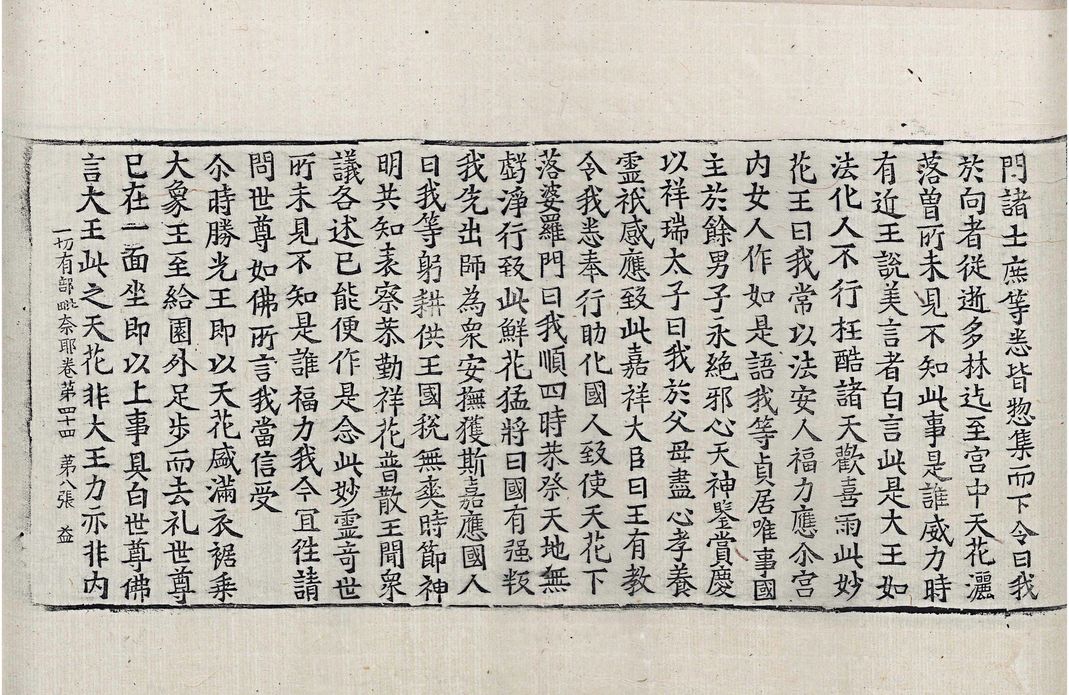 門諸士庶等悉皆惣集而下令曰我
於向者從逝多林迄至宮中天花灑
落曽所未見不知此事是誰威力時
有近王說美言者白言此是大王如
法化人不行枉酷諸天歡喜雨此妙
花王曰我常以法安人福力應尒宮
內女人作如是語我等貞居唯事國
主於餘男子永絕邪心天神鑒賞慶
以祥瑞太子曰我於父母盡心孝養
靈祇感應致此嘉祥大臣曰王有教
令我悉奉行助化國人致使天花下
落婆羅門曰我順四時恭祭天地無
虧淨行致此鮮花猛將曰國有强叛
我先出師為衆安撫獲斯嘉應國人
曰我等躬耕供王國稅無爽時節神
明共知表察恭勤祥花普散王聞衆
議各述已能便作是念此妙靈竒世
所未見不知是誰福力我今冝往請
問世尊如佛所言我當信受
尒時勝光王即以天花盛滿衣裾乗
大象王至給園外足步而去礼世尊
已在一面坐即以上事具白世尊佛
言大王此之天花非大王力亦非内
一切有部毗奈耶卷第四十四 苐八張 益